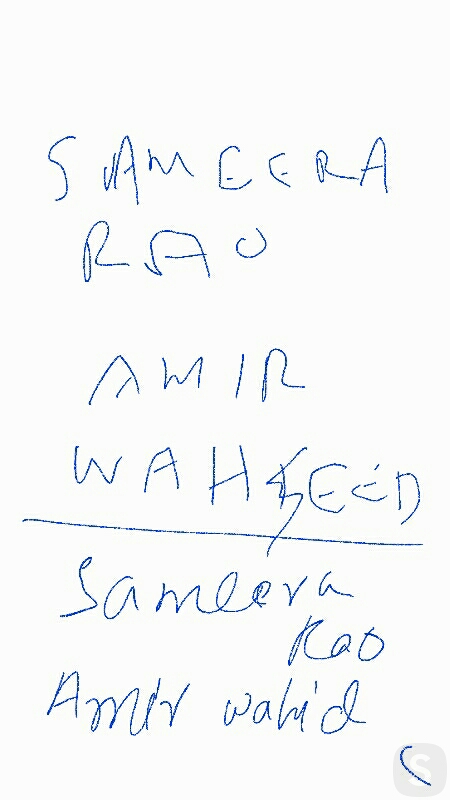 SAMEERA
RAO
AMIR
WAHEED
Sameera
Rao
Amir wahid